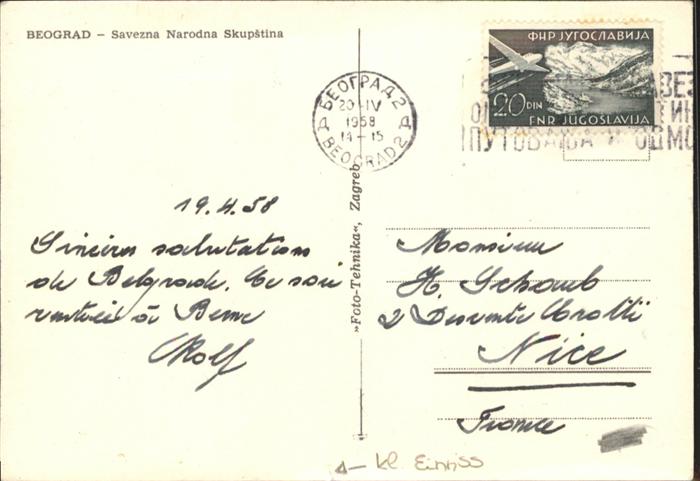 BEOGRAD – Savezna Narodna Skupština
ФНР ЈУГОСЛАВИЈА
20 DIN
FNR JUGOSLAVIJA
БЕОГРАД 2
20-IV
1958
14-15
BEOGRAD 2
ПУТОВАЊА И ОДМО
19.4.58
Sincères salutations
de Belgrade. Ce soir
rentrée à Berne
Rolf
»Foto-Tehnika«, Zagreb
Monsieur
H. Schaub
2 Descente Crotti
Nice
France
kl. Einriss